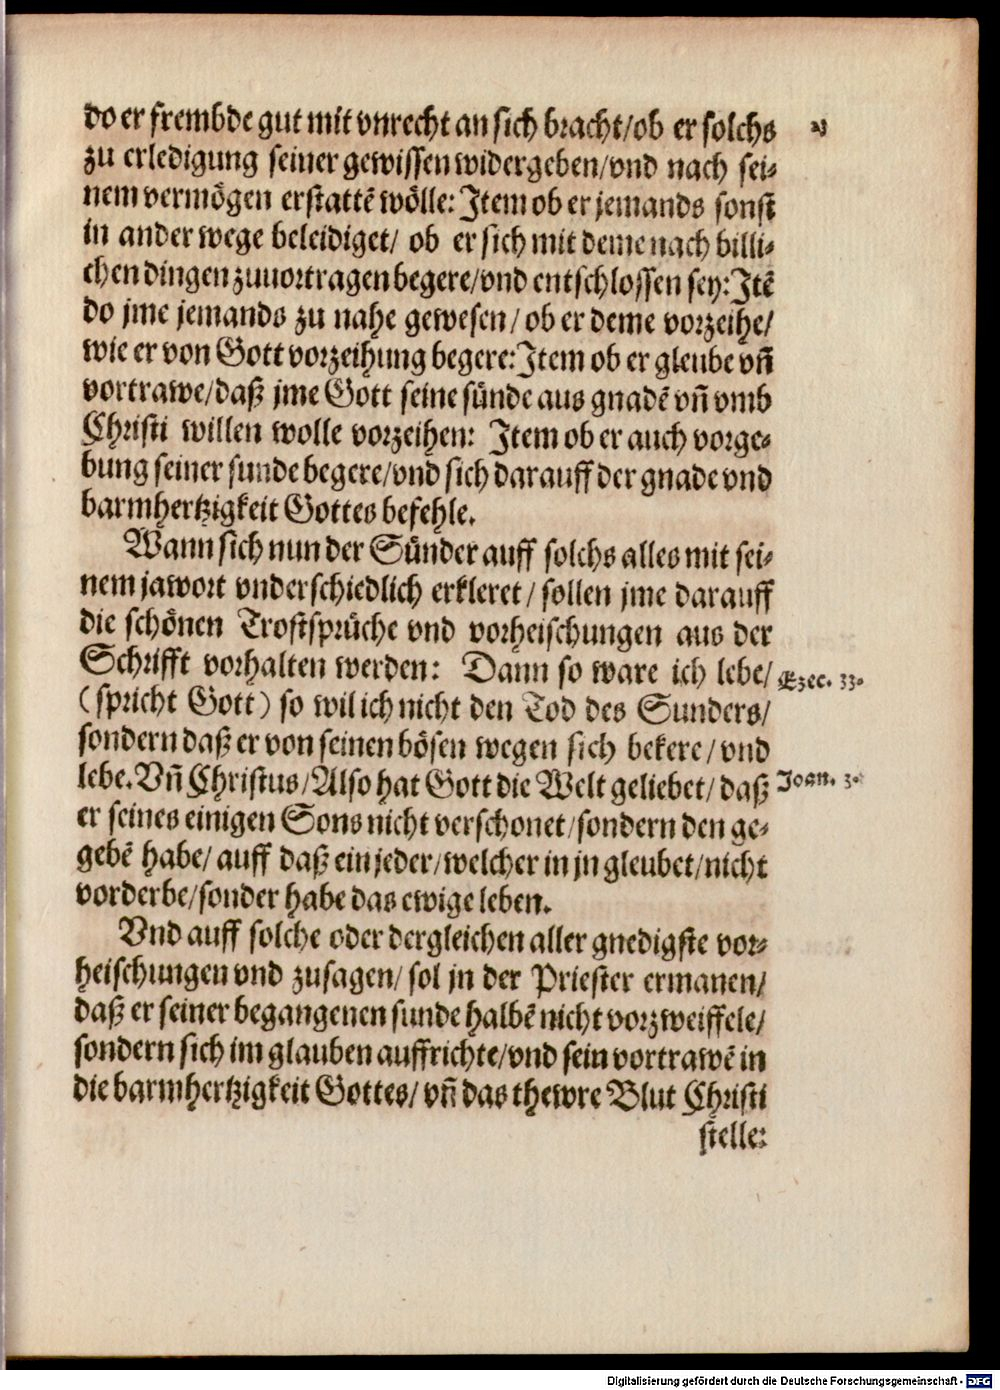 do er frembde gut mit vnrecht an sich bracht/ob er solchs
zu erledigung seiner gewissen widergeben/vnd nach sei-
nem vermögen erstattẽ wölle: Item ob er jemands sonst
in ander wege beleidiget/ ob er sich mit deme nach billi-
chen dingen zuuortragen begere/vnd entschlossen sey: Itẽ
do jme jemands zu nahe gewesen/ ob er deme vorzeihe/
wie er von Gott vorzeihung begere: Item ob er gleube vñ
vortrawe/daß jme Gott seine sünde aus gnadẽ vñ vmb
Christi willen wolle vorzeihen: Item ob er auch vorge-
bung seiner sunde begere/vnd sich darauff der gnade vnd
barmhertzigkeit Gottes befehle.
Wann sich nun der Sünder auff solchs alles mit sei-
nem jawort vnderschiedlich erkleret/ sollen jme darauff
die schönen Trostsprüche vnd vorheischungen aus der
Schrifft vorhalten werden: Dann so ware ich lebe/
Ezec. 33.
(spricht Gott) so wil ich nicht den Tod des Sunders/
sondern daß er von seinen bösen wegen sich bekere/vnd
lebe. Vñ Christus/Also hat Gott die Welt geliebet/ daß
Joan. 3.
er seines einigen Sons nicht verschonet/sondern den ge-
gebẽ habe/ auff daß ein jeder/welcher in jn gleubet/nicht
vorderbe/sonder habe das ewige leben.
Vnd auff solche oder dergleichen aller gnedigste vor-
heischungen vnd zusagen/ sol jn der Priester ermanen/
daß er seiner begangenen sunde halbẽ nicht vorzweiffele/
sondern sich im glauben auffrichte/vnd sein vortrawẽ in
die barmhertzigkeit Gottes/ vñ das thewre Blut Christi
stelle:
Digitalisierung gefördert durch die Deutsche Forschungsgemeinschaft - DFG